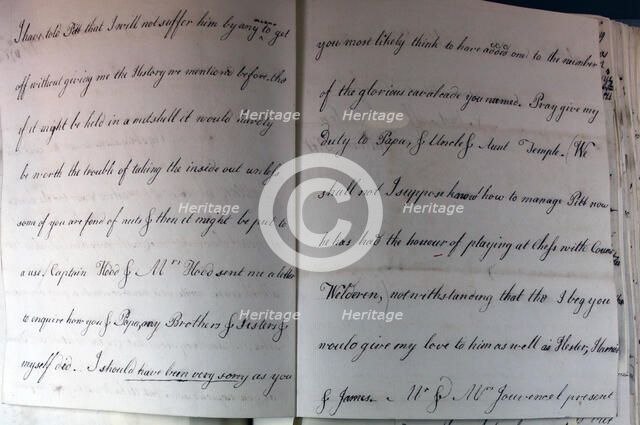 I have told Pitt that I will not suffer him by any means to get
off without giving me the History we mentioned before, tho
if it might be held in a nutshell it would hardly
be worth the trouble of taking the inside out unless
some of you are fond of nuts & then it might be put to
a use. Captain Hood & Mrs Hood sent me a letter
to enquire how you & Papa, my Brothers & Sisters &
myself did. I should have been very sorry as you
you most likely think to have added one to the number
of the glorious cavalcade you named. Pray give my
duty to Papa, & Uncle & Aunt Temple. (We
shall not I suppose know how to manage Pitt now
he has had the honour of playing at Chess with Count
Welderen,) notwithstanding that tho I beg you
would give my love to him as well as Hester, Harriot
& James. Mr & Mrs Jouvencel present
Heritage
Heritage
Heritage
Heritage
Heritage
Heritage
©